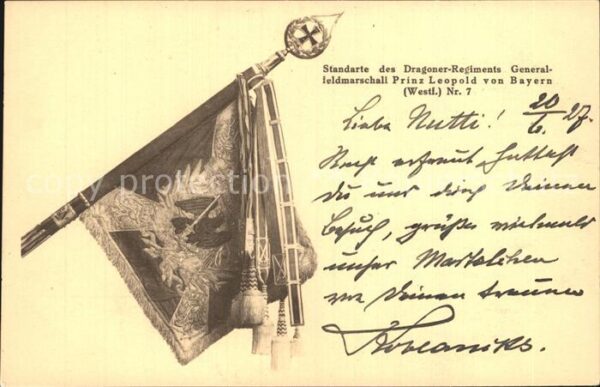 Standarte des Dragoner-Regiments General-
feldmarschall Prinz Leopold von Bayern
(Westf.) Nr. 7
Liebe Mutti! 20/6. 27.
erfreut hattest
Du uns durch Deinen
Besuch, grüße vielmals
unser
von Deinen treuen
copy protection